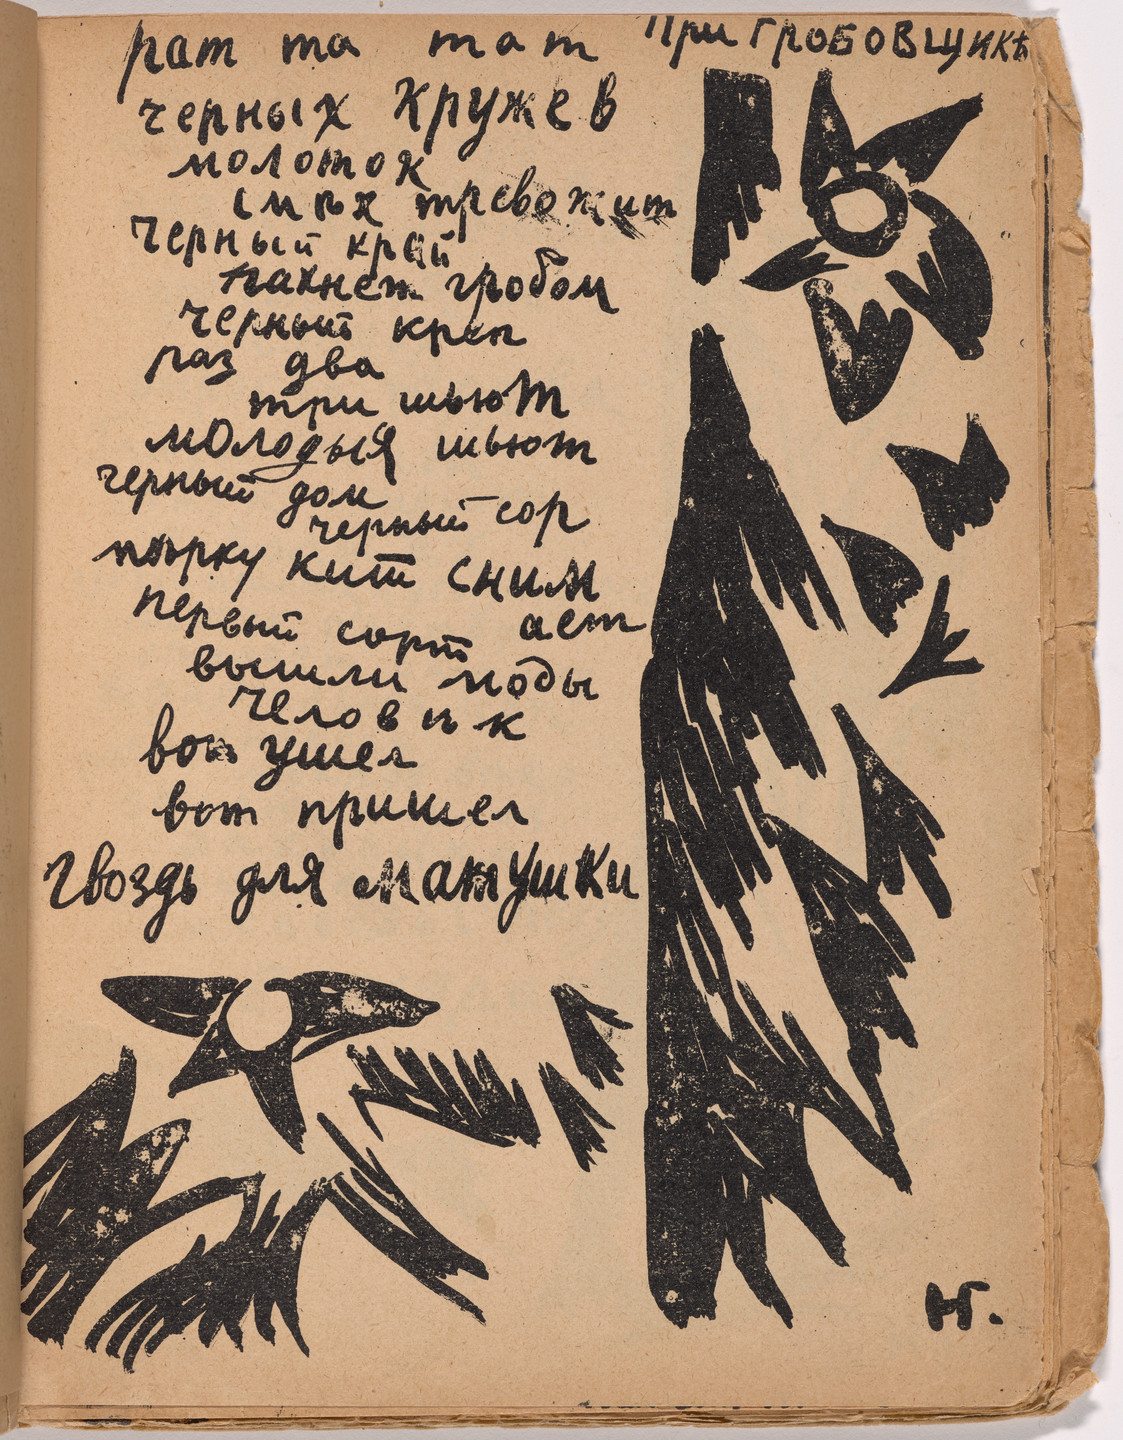 При гробовщикѣ
рат та тат
черных кружев
молоток
смѣх тревожит
черный край
пахнет гробом
черный креп
раз два
три шьют
молодыя шьют
черный дом
черный сор
кит сним
ает
первый сорт
вышли моды
человѣк
вот ушел
вот пришел
гвоздь для матушки
Н.Г.